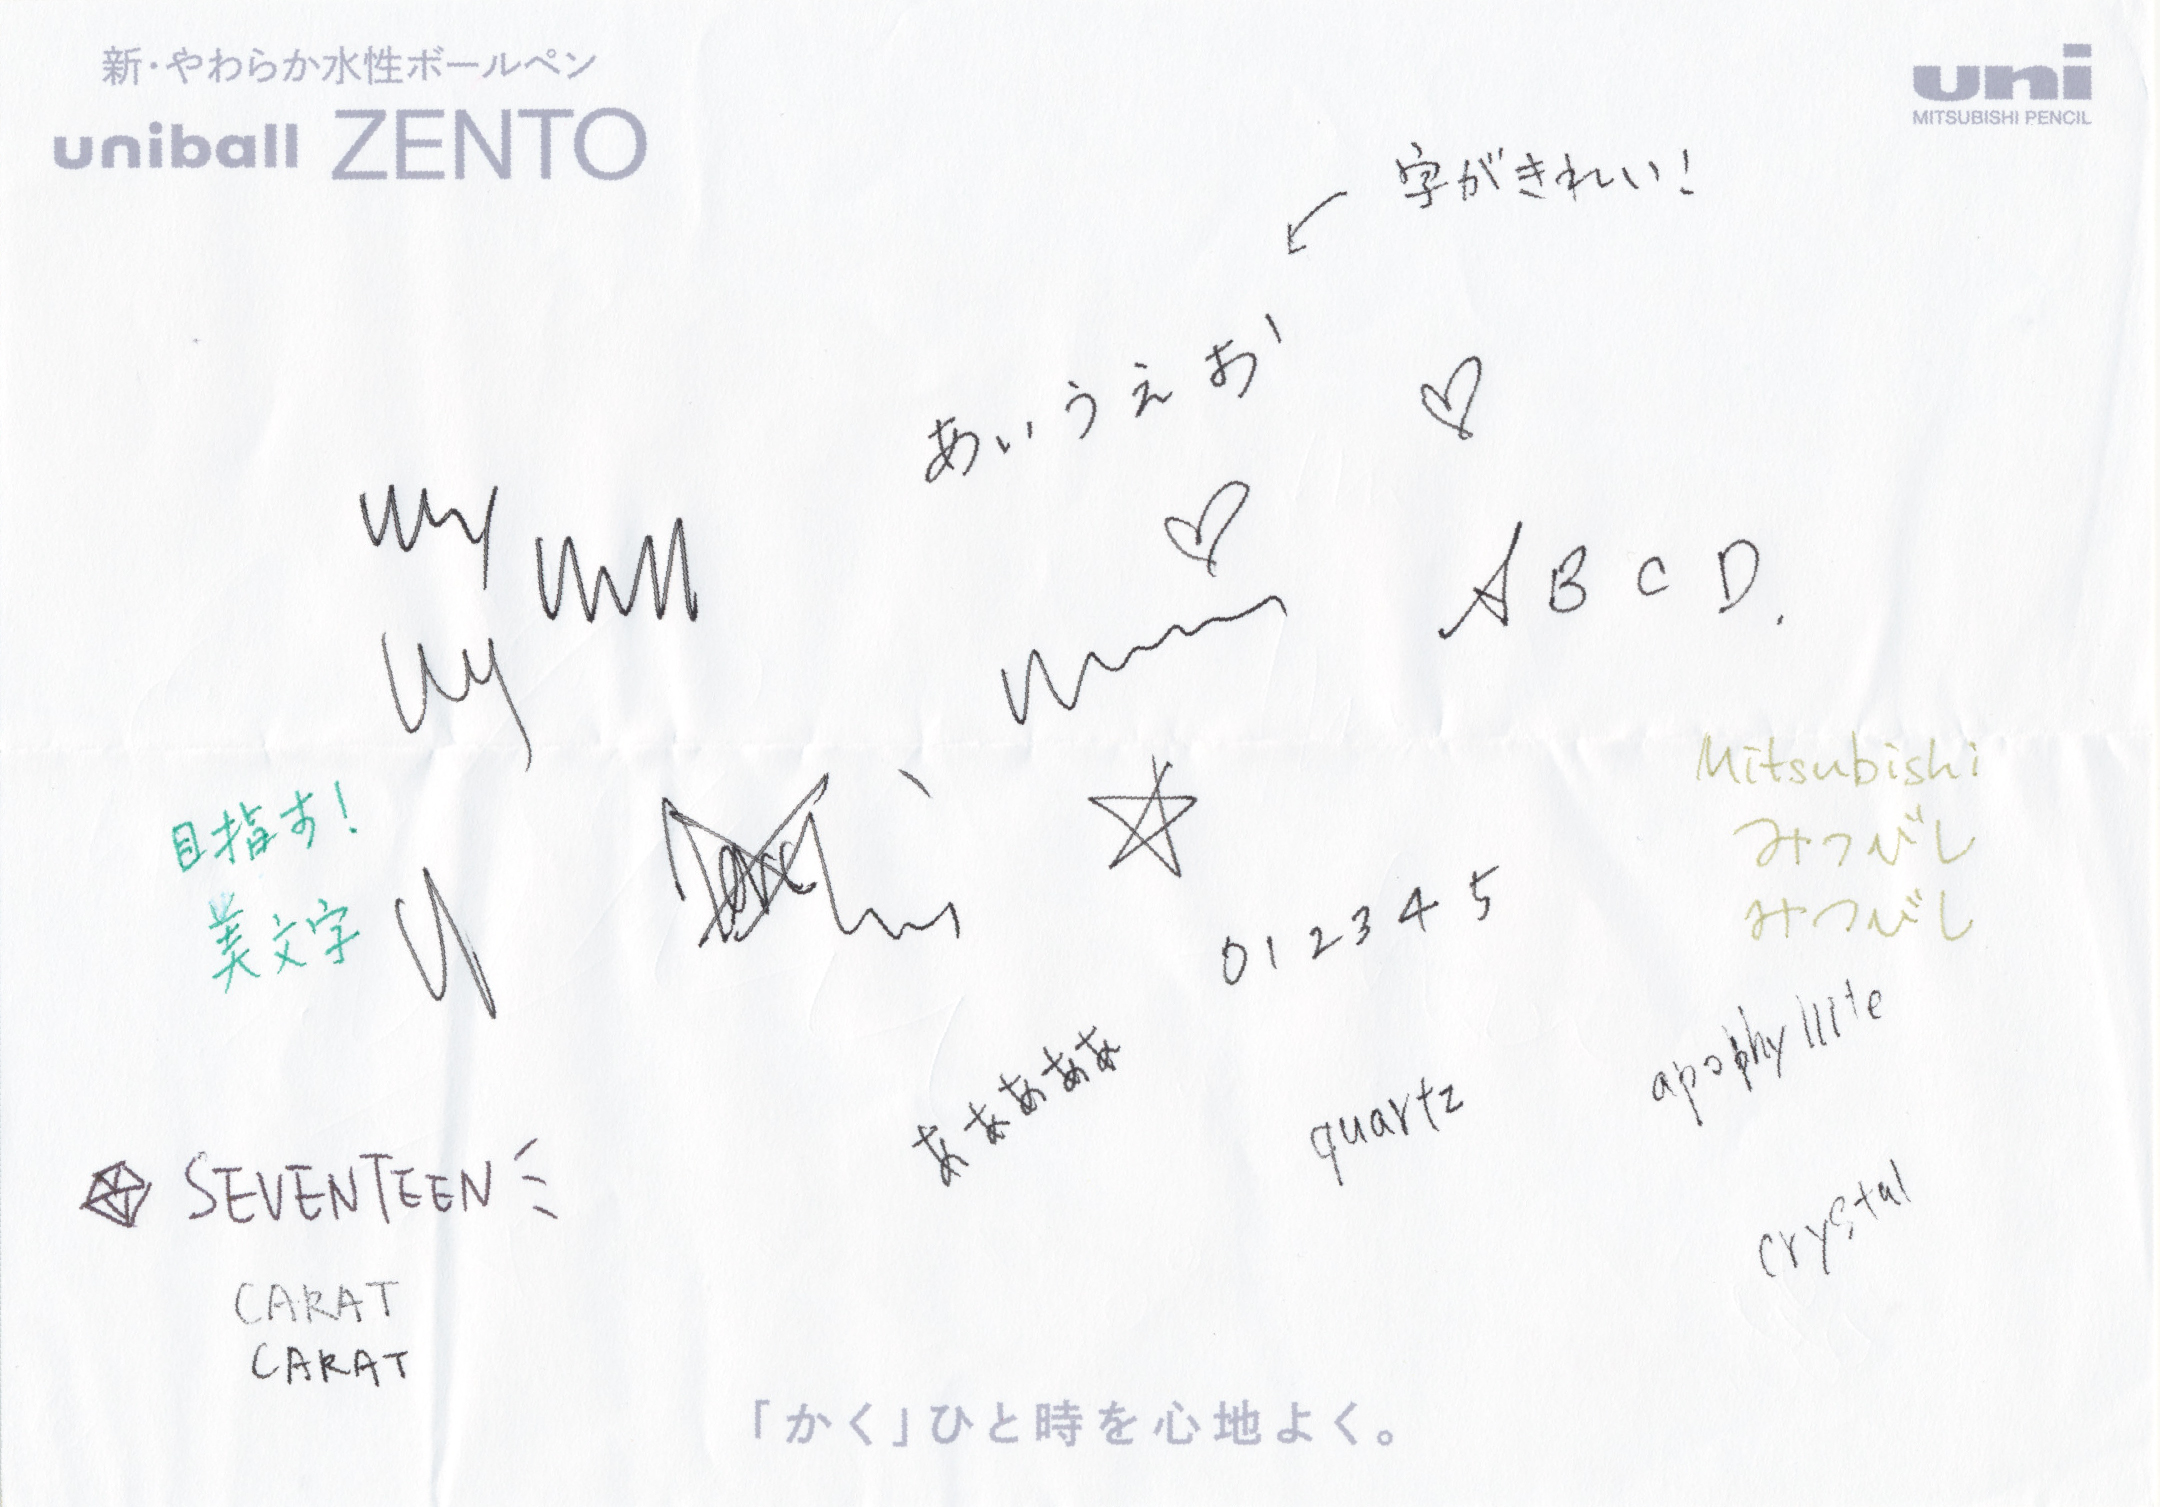 新・やわらか水性ボールペン
uniball ZENTO
uni
MITSUBISHI PENCIL
字がきれい！
あいうえお
A B C D.
Mitsubishi
みつびし
みつびし
目指す！
美文字
0 1 2 3 4 5
apophyllite
ああああああ
quartz
crystal
SEVENTEEN
CARAT
CARAT
「かく」ひと時を心地よく。